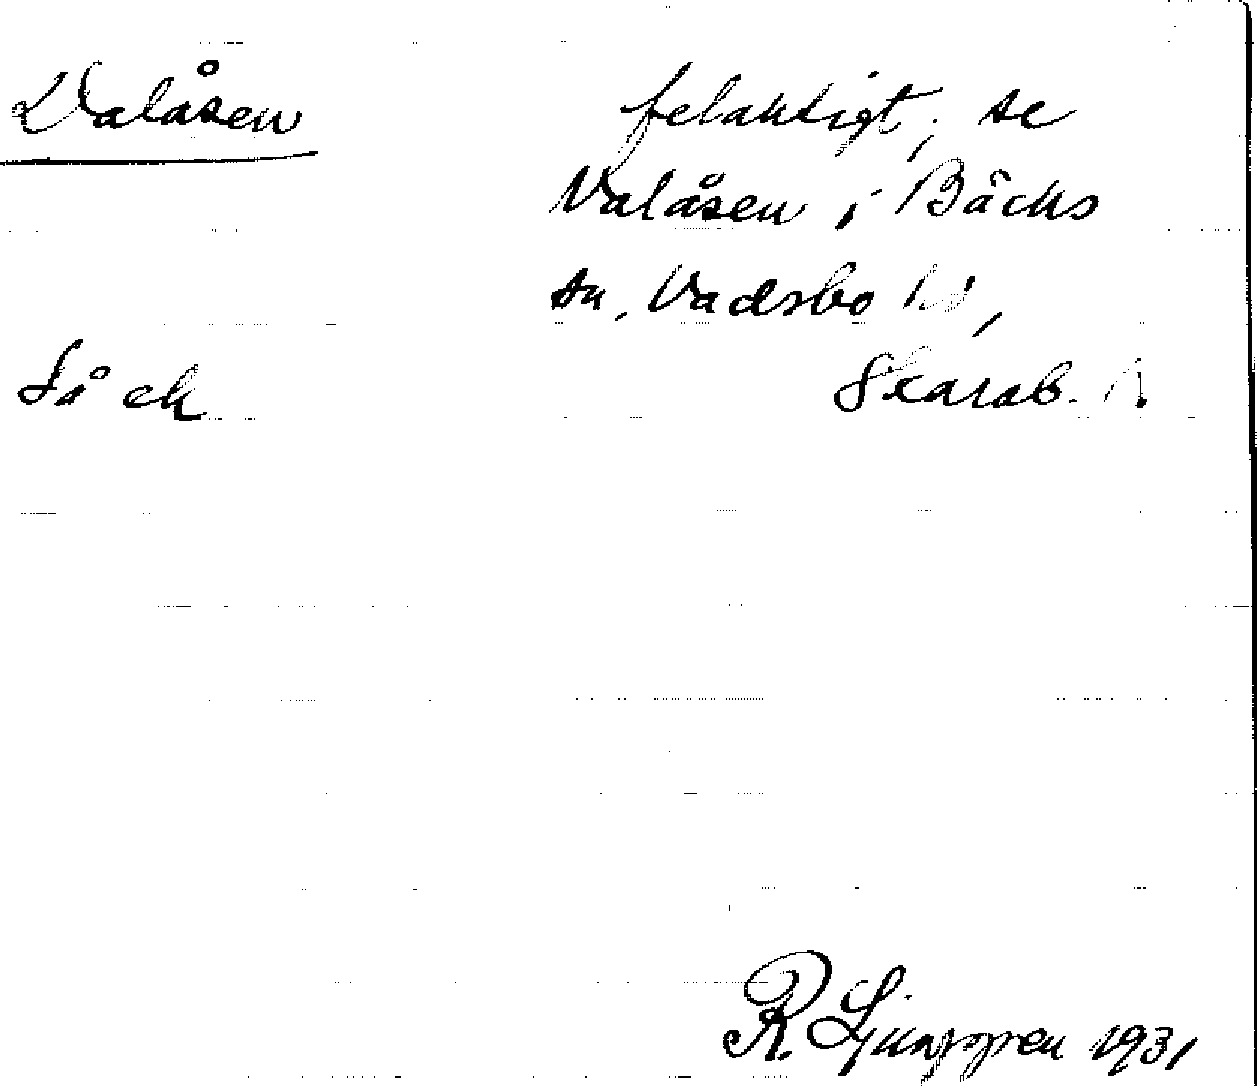 Valåsen felaktigt, se
Valåsen i Bäcks
sn, Vadsbo hd,
Så ek Skarab. l.
R. Ljunggren 1931